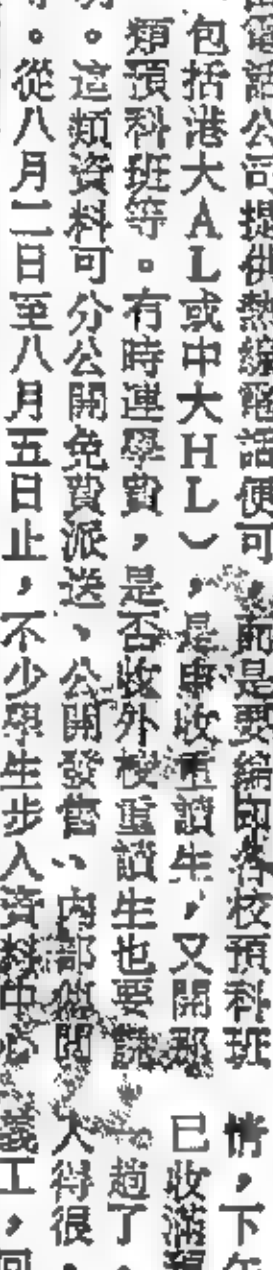 電話公司提供熱線電話便可，而是要編印各校預科班
包括港大AL或中大HL），是申收重讀生，又開那
類預科班等。有時連學費，是否收外校重讀生也要
。這類資料可分公開免費派送、公開發售、內部
。從八月二日至八月五日止，不少學生步入資料中心
情，下
已收滿
趟了。
人得很，
義工，回